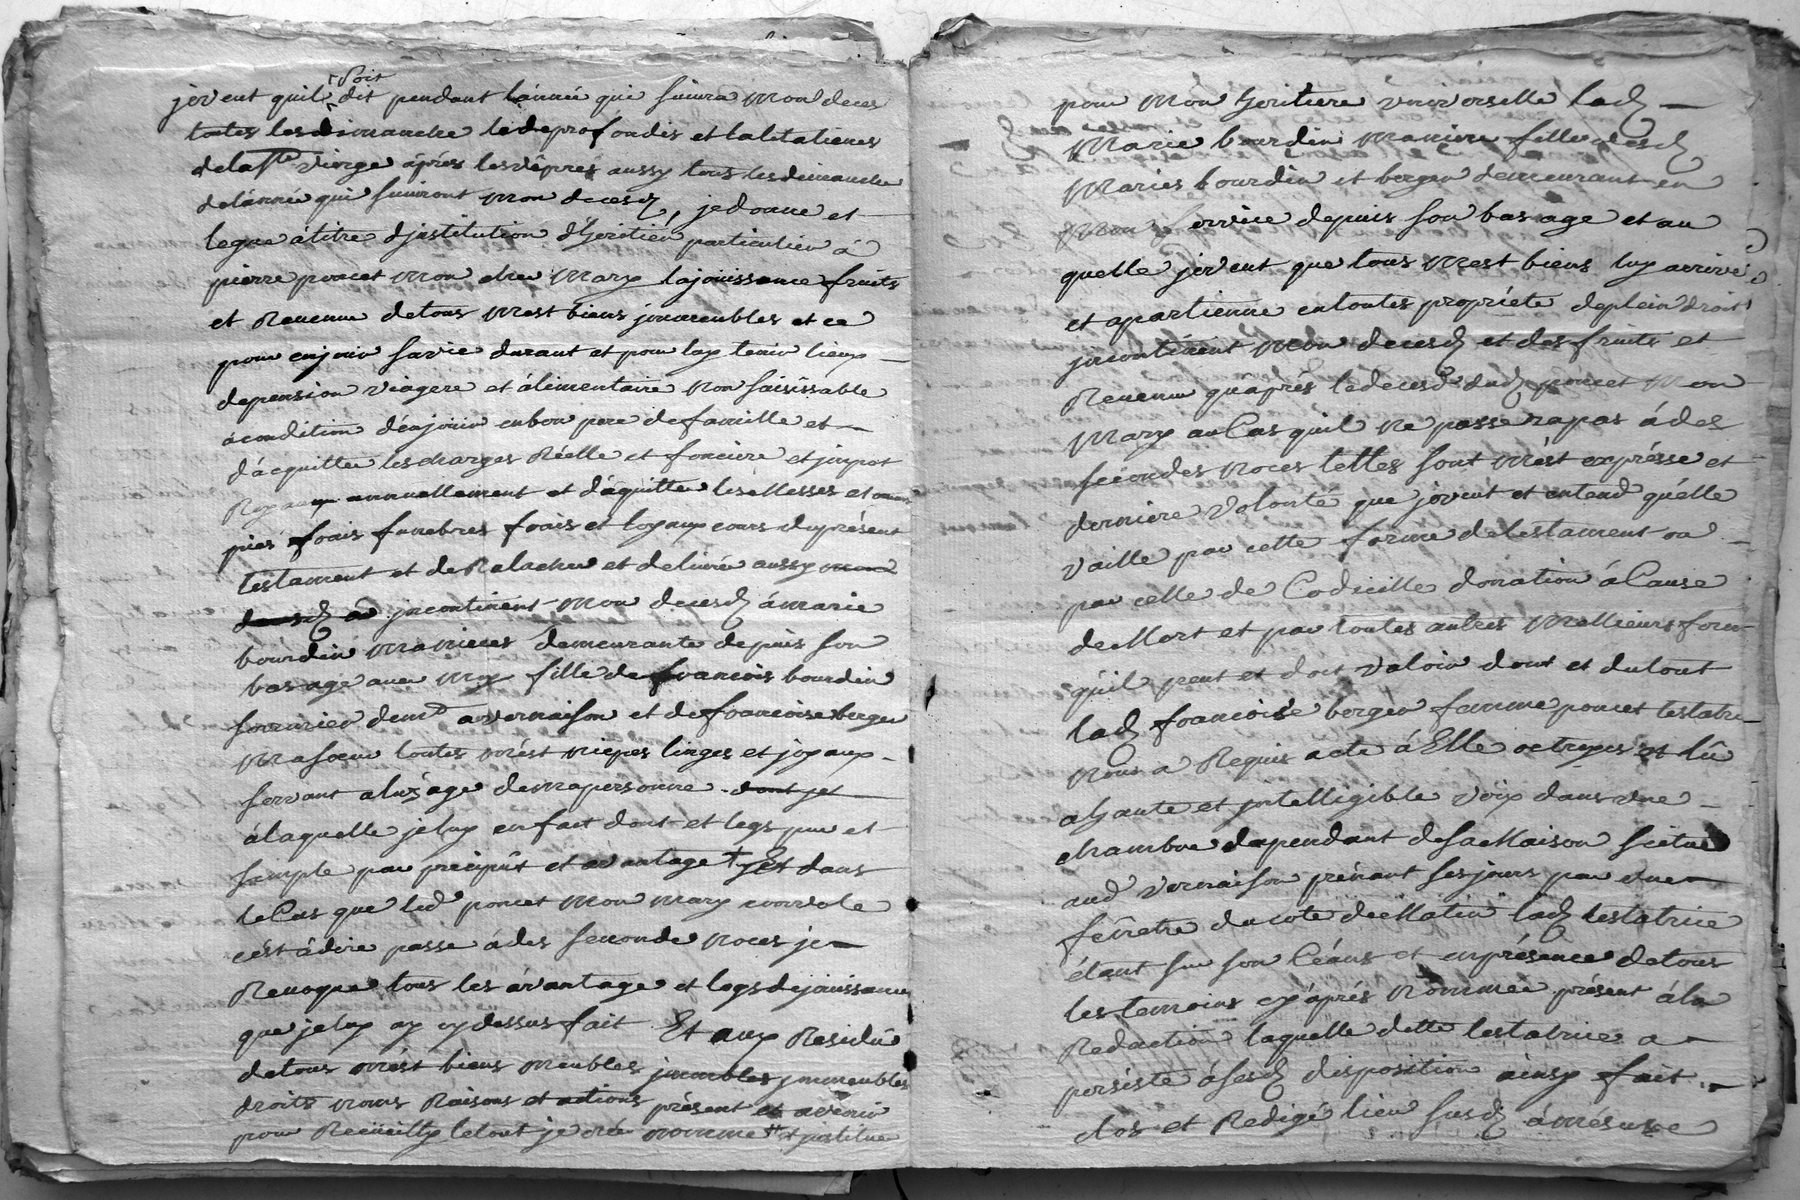 soit
jevent quil dit pendant lánnée qui suivra mon deces
toutes les dimanche le deprofondis et la litatienes
dela Ste vierge áprés les vêpres aussy tous les dimanche
delánnée qui suivront mon decesd, je donne et
legue átitre djnstitution dheritier particulier á
pierre poncet mon cher mary lajouissance fruits
et Revenu detous mest biens jmmeubles et ce
pour enjouir savie durant et pour luy tenir lieux
depension viagere et álimentaire non saisissable
ácondition dénjouir enbon pere defamille et
dácquitter les charges Réelle et fonciere et jmpot
Royaux annuellement et dáquitter les Messes et
pies frais funebres frais et loyaux cours duprésent
testament et de Relacher et delivré aussy
jncontinent mon decesd ámarie
bourdin manieces demeurante depuis son
bas age avec moy fille de francois bourdin
demt avernaison et de francoise berger
masoeur toutes mést nipes linges et joyaux
servant aluzâge demapersonne dont jet
álaquelle jeluy enfait dont et legs pur et
simple par precipût et avantage + Et dans
le Cas que led poncet mon mary convole
cést ádire passe ádes seconde noces je
Revoque tous les ávantage et legs dejouissance
que jeluy ay cy dessus fait Et aux Residû
detous mést biens meubles jmmbles jmmeubles
droits noms Raisons et actions présent et avenir
pour Recüeilly letout je nommé et jnstitue
pour Mon heritiere vniverselle lad
Marie bourdin Maniere fille desd
Maries bourdin et berger demeurant en
Mon service depuis son bas age et au
quelle jevent que tous mest biens luy arrive
et apartienne entoutes propriété deplein droit
jncontinent mon decesd et des fruits et
Revenu quaprés ledecesd dud poncet Mon
Mary au Cas quil ne passera pas ádes
secondes noces telles sont mést expresse et
derniere volonté que jevent et entend quélle
vaille par cette forme detestament ou
par celle de Codicille donation áCause
deMort et par toutes autres Mellieurs form
quil peut et doit valoir dont et dutout
lad francoise berger famme poncet testatri
nous a Requis acte áElle octroyes et lû
ahaute et jntelligible voix dans vne
chambre dependant desaMaison scitué
aud vernaison prénant sesjours par vne
fenêtre ducoté deMatin lad testatrice
étant sur son Céans et enprésence detous
les temoins cy áprés nommée présent ála
Redaction laquelle dette testatrice a
persisté ásesd disposition áinsy fait
clos et Redigé lieu susd ámésure